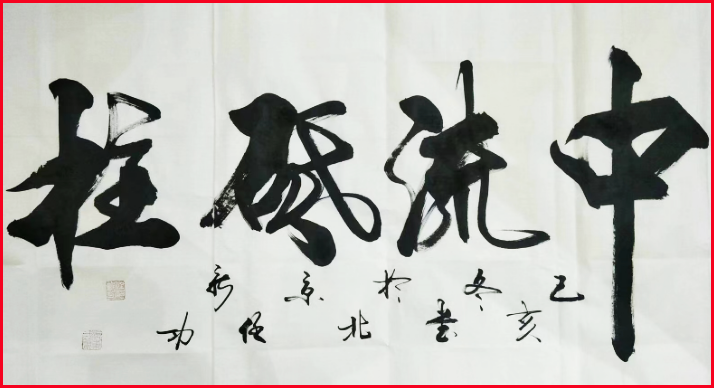 中流砥柱
己亥冬書於北京新功